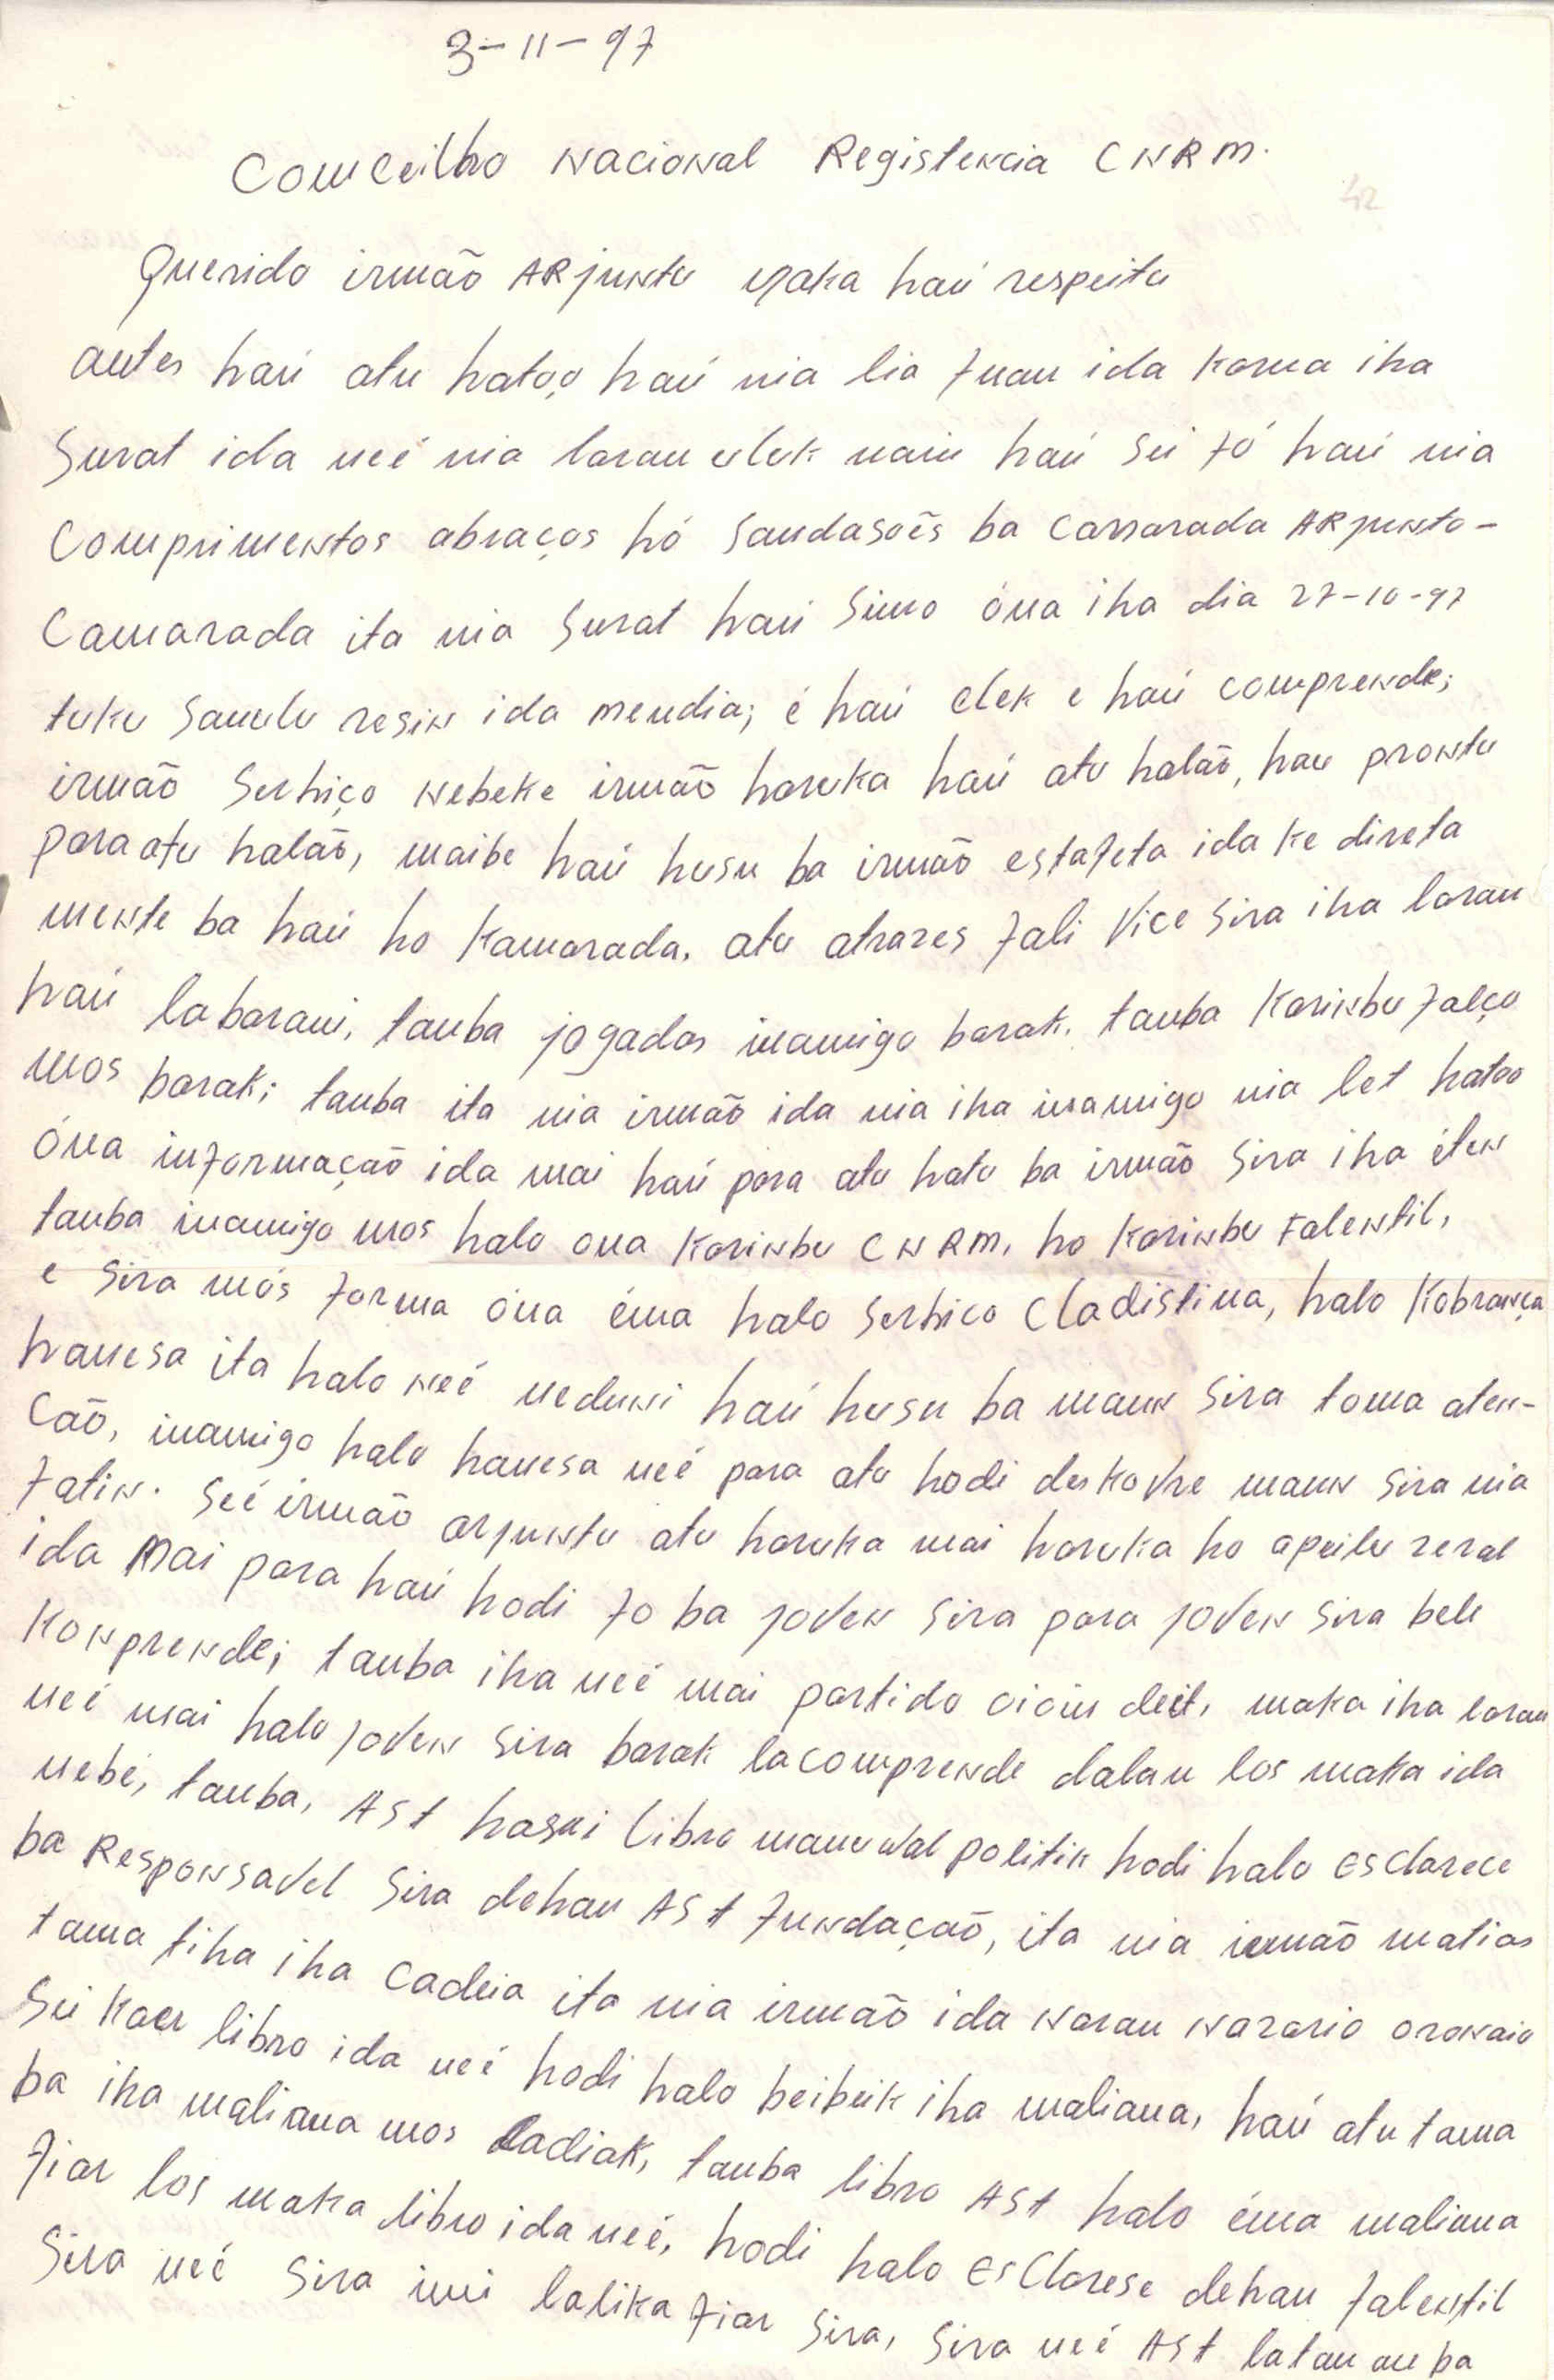 3-11-97
Comceilho Nacional Registencia CNRM.
Querido irmão ARjuntu maka haú respeitu
antes haú atu hatoo haú nia lia fuan ida koma iha
Surat ida neé nia laran uluk nain haú sei fó haú nia
Comprimentos abraços hó Saudasoẽs ba Camarada ARjunto-
Camarada ita nia Surat haú Simo óna iha dia 27-10-97
tuku Sanulu resin ida meudia; é haú elek e haú comprende;
irmão Serbiço nebeke irmão haruka haú atu halaõ, hau prontu
para atu halaõ, maibe haú husu ba irmão estafeta ida ke direta
mente ba haú ho Kamarada. atu atrazes fali Vice Sira iha laran
haú labarani, tanba jogadas inamigo barak. tanba Karinbu falço
mos barak; tanba ita nia irmão ida nia iha inamigo nia let hatoo
óna informaçaõ ida mai haú para atu hatu ba irmão Sira iha iten
tanba inamigo mos halo ona Karinbu CNRM. ho Karinbu Falentil,
e Sira mós forma óna éma halo Serbico Cladistina, halo Kobrança
hanesa ita halo neé neduni haú husu ba maun Sira toma aten-
Caõ, inamigo halo hanesa neé para atu hodi deskovre maun Sira nia
fatin. Seé irmão arjuntu atu haruka mai haruka ho apeilu reral
ida Mai para haú hodi fo ba joven Sira para joven Sira bele
Konprende; tanba iha neé mai partido oioin deit, maka iha laran
neé mai halo joven Sira barak lacomprende dalan los maka ida
nebé, tanba, ASt hasai libro manuwal politik hodi halo esclarece
ba Responsavel Sira dehan ASt fundaçaõ, ita nia irmão matias
tama tiha iha Cadeia ita nia irmão ida naran Nazario oronaio
Sei Kaer libro ida neé hodi halo beibeik iha maliana, haú atu tama
ba iha maliana mos Ladiak, tanba libro ASt halo éma maliana
fiar los maka libro ida neé, hodi halo esClarese dehan falentil
Sira neé Sira imi lalika fiar Sira, Sira neé ASt latau an ba